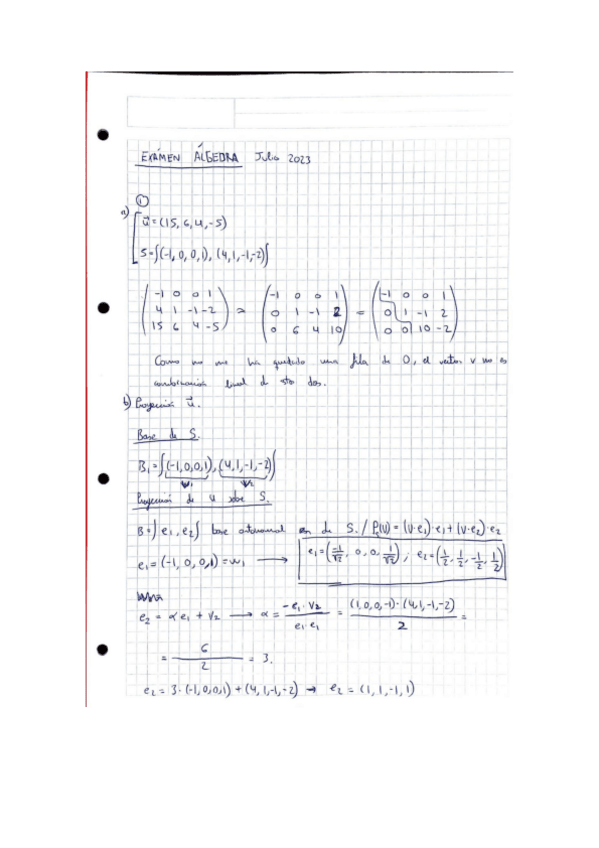 EXÁMEN ÁLGEBRA Julio 2023
①
a) u⃗ = (15, 6, 4, -5)
S = {(-1, 0, 0, 1), (4, 1, -1, -2)}
( -1 0 0 1 ) = ( -1 0 0 1 ) = ( -1 0 0 1 )
( 4 1 -1 -2 ) ( 0 1 -1 2 ) ( 0 1 -1 2 )
( 15 6 4 -5 ) ( 0 6 4 10 ) ( 0 0 10 -2 )
Como no me ha quedado una fila de 0, el vector v no es
combinación lineal de esto dos.
b) Proyección u⃗.
Base de S.
B₁ = {(-1, 0, 0, 1), (4, 1, -1, -2)}
v₂
Proyección de u sobre S.
B = {e₁, e₂} base ortonormal de S. / Pₛ(V) = (V·e₁)·e₁ + (V·e₂)·e₂
e₁ = (-1, 0, 0, 1) = w₁ ⟶ e₁ = (-1/√2, 0, 0, 1/√2) ; e₂ = (1/2, 1/2, -1/2, 1/2)
e₂ = α e₁ + V₂ ⟶ α = -e₁·V₂ / e₁·e₁ = (1, 0, 0, -1)·(4, 1, -1, -2) / 2 =
= 6/2 = 3.
e₂ = 3·(-1, 0, 0, 1) + (4, 1, -1, -2) → e₂ = (1, 1, -1, 1)